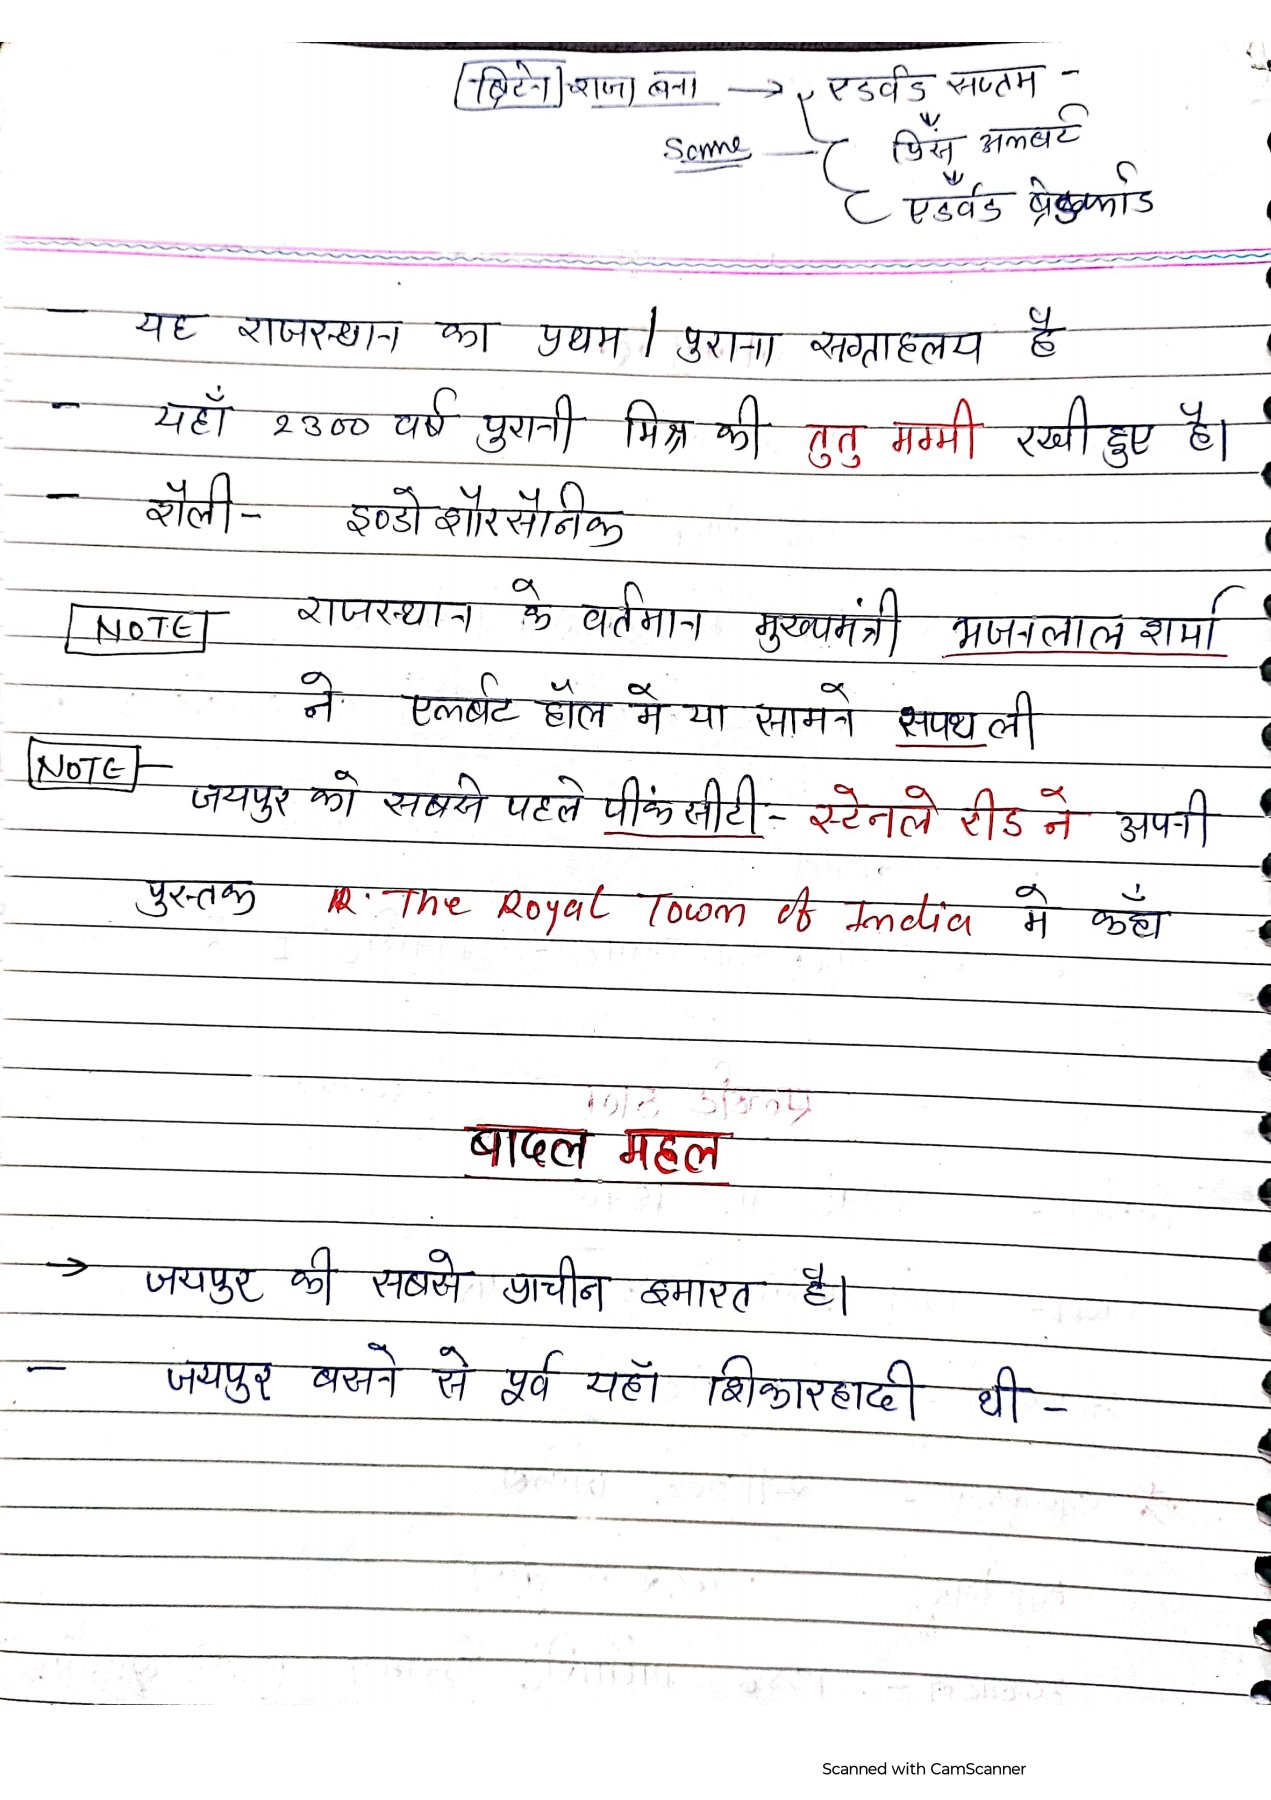 ब्रिटेन राजा बना → एडर्वड सप्तम -
Same — प्रिंस अलबर्ट
एडर्वड ब्रेडफोर्ड
- यह राजस्थान का प्रथम / पुराना सग्राहलय है
- यहाँ 2300 वर्ष पुरानी मिश्र की तुतु मम्मी रखी हुए है।
- शैली - इण्डो शौरसौनिक
NOTE राजस्थान के वर्तमान मुख्यमंत्री भजनलाल शर्मा
ने एलर्बट हॉल मे या सामने सपथ ली
NOTE - जयपुर को सबसे पहले पीकं सीटी - स्टेनले रीड ने अपनी
पुस्तक The Royal Town of India मे कहाँ
बादल महल
→ जयपुर की सबसे प्राचीन इमारत है।
- जयपुर बसने से पूर्व यहाँ शिकारहादी थी -
Scanned with CamScanner